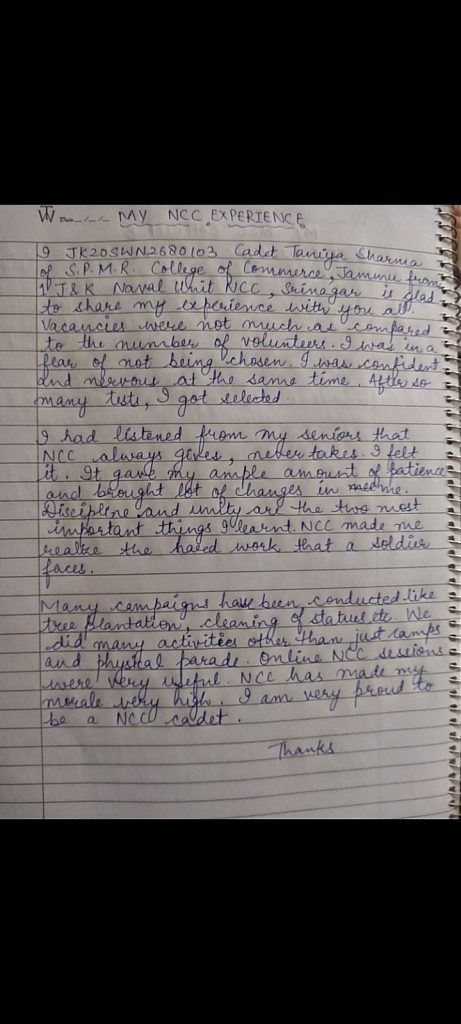 Date __/__/__ MY NCC EXPERIENCE
I JK20SWN2680103 Cadet Taniya Sharma
of S.P.M.R. College of Commerce, Jammu from
1 J&K Naval Unit NCC, Srinagar is glad
to share my experience with you all.
Vacancies were not much as compared
to the number of volunteers. I was in a
fear of not being chosen. I was confident
and nervous at the same time. After so
many tests, I got selected.
I had listened from my seniors that
NCC always gives, never takes. I felt
it. It gave my ample amount of patience
and brought lot of changes in me.
Discipline and unity are the two most
important things I learnt. NCC made me
realze the hard work that a soldier
faces.
Many campaigns have been conducted like
tree plantation, cleaning of statues etc. We
did many activities other than just camps
and physical parade. Online NCC sessions
were very useful. NCC has made my
morale very high. I am very proud to
be a NCC cadet.
Thanks